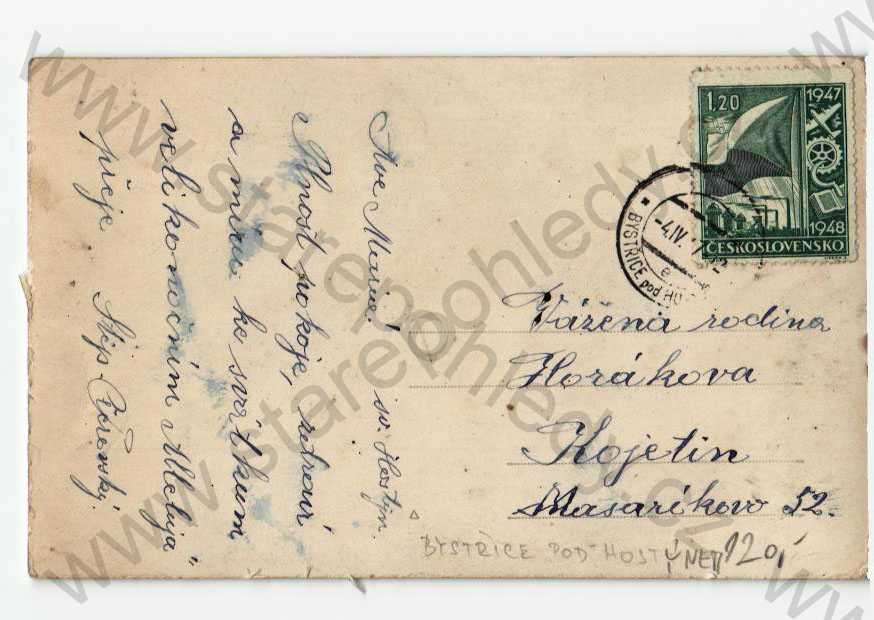 Ave Maria! sv. Hostýn.
Hojnost pokoje, zdraví
a míru ke svátkům
velikonočním Alleluja"
přeje Štěp.
1.20
1947
1948
ČESKOSLOVENSKO
BYSTŘICE pod HO
-4.IV. 47-12
e
Vážená rodina
Horákova
Kojetin
Masaríkovo 52.
BYSTŘICE POD HOSTÝNEM 120,-
www.starepohledy.cz
www.starepohledy.cz